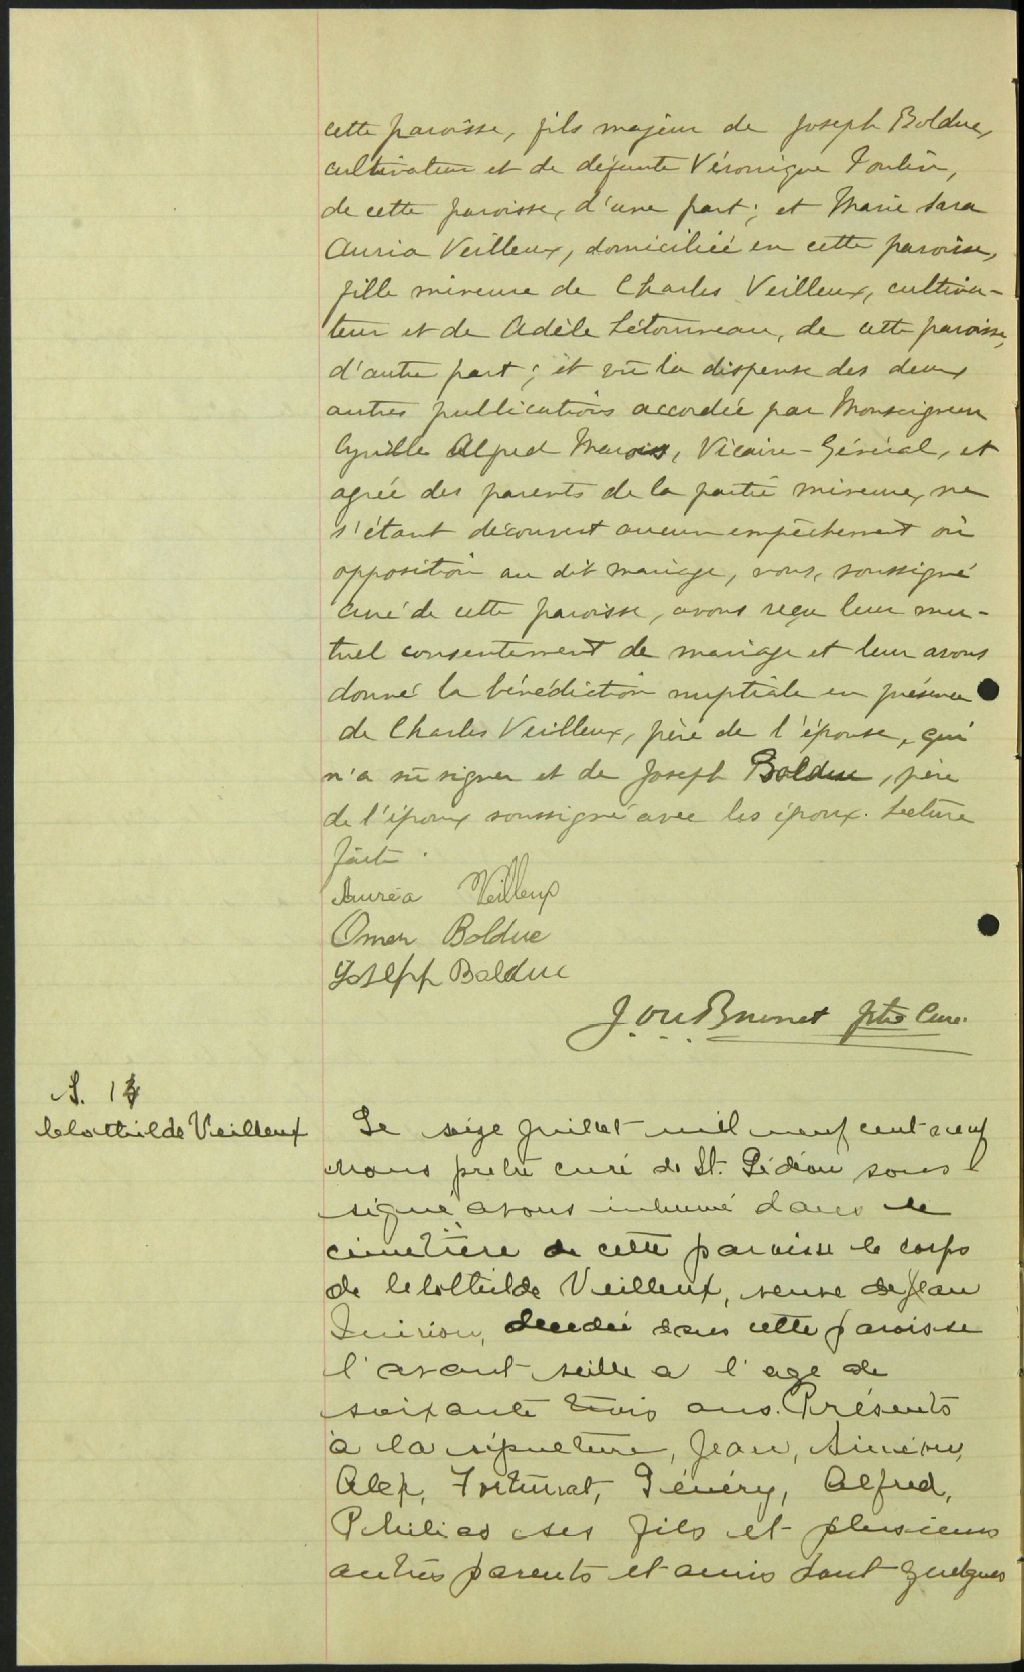 cette paroisse, fils majeur de Joseph Bolduc,
cultivateur et de défunte Véronique Poulin,
de cette paroisse, d'une part; et Marie Sara
Auria Veilleux, domiciliée en cette paroisse,
fille mineure de Charles Veilleux, cultiva-
teur et de Adèle Létourneau, de cette paroisse,
d'autre part; et vu la dispense des deux
autres publications accordée par Monseigneur
Cyrille Alfred Marois, Vicaire-Général, et
agrée des parents de la partie mineure, ne
s'étant découvert aucun empêchement ou
opposition au dit mariage, nous, soussigné
curé de cette paroisse, avons reçu leur mu-
tuel consentement de mariage et leur avons
donné la bénédiction nuptiale en présence
de Charles Veilleux, père de l'épouse, qui
n'a su signer et de Joseph Bolduc, père
de l'époux soussigné avec les époux. Lecture
faite.
Auréa Veilleux
Omer Bolduc
Joseph Bolduc
Ptre Curé.
S. 1
Clothilde Veilleux
Le seize juillet mil neuf cent neuf
nous pretre curé de St. Gédéon sous-
signé avons inhumé dans le
cimetière de cette paroisse le corps
de Clothilde Veilleux, veuve de Jean
Quirion, decedée dans cette paroisse
l'avant veille a l'age de
soixante trois ans. Présents
à la sépulture, Jean, Siméon,
Alex, Fortunat, Général, Alfred,
Philias ses fils et plusieurs
autres parents et amis dont quelques